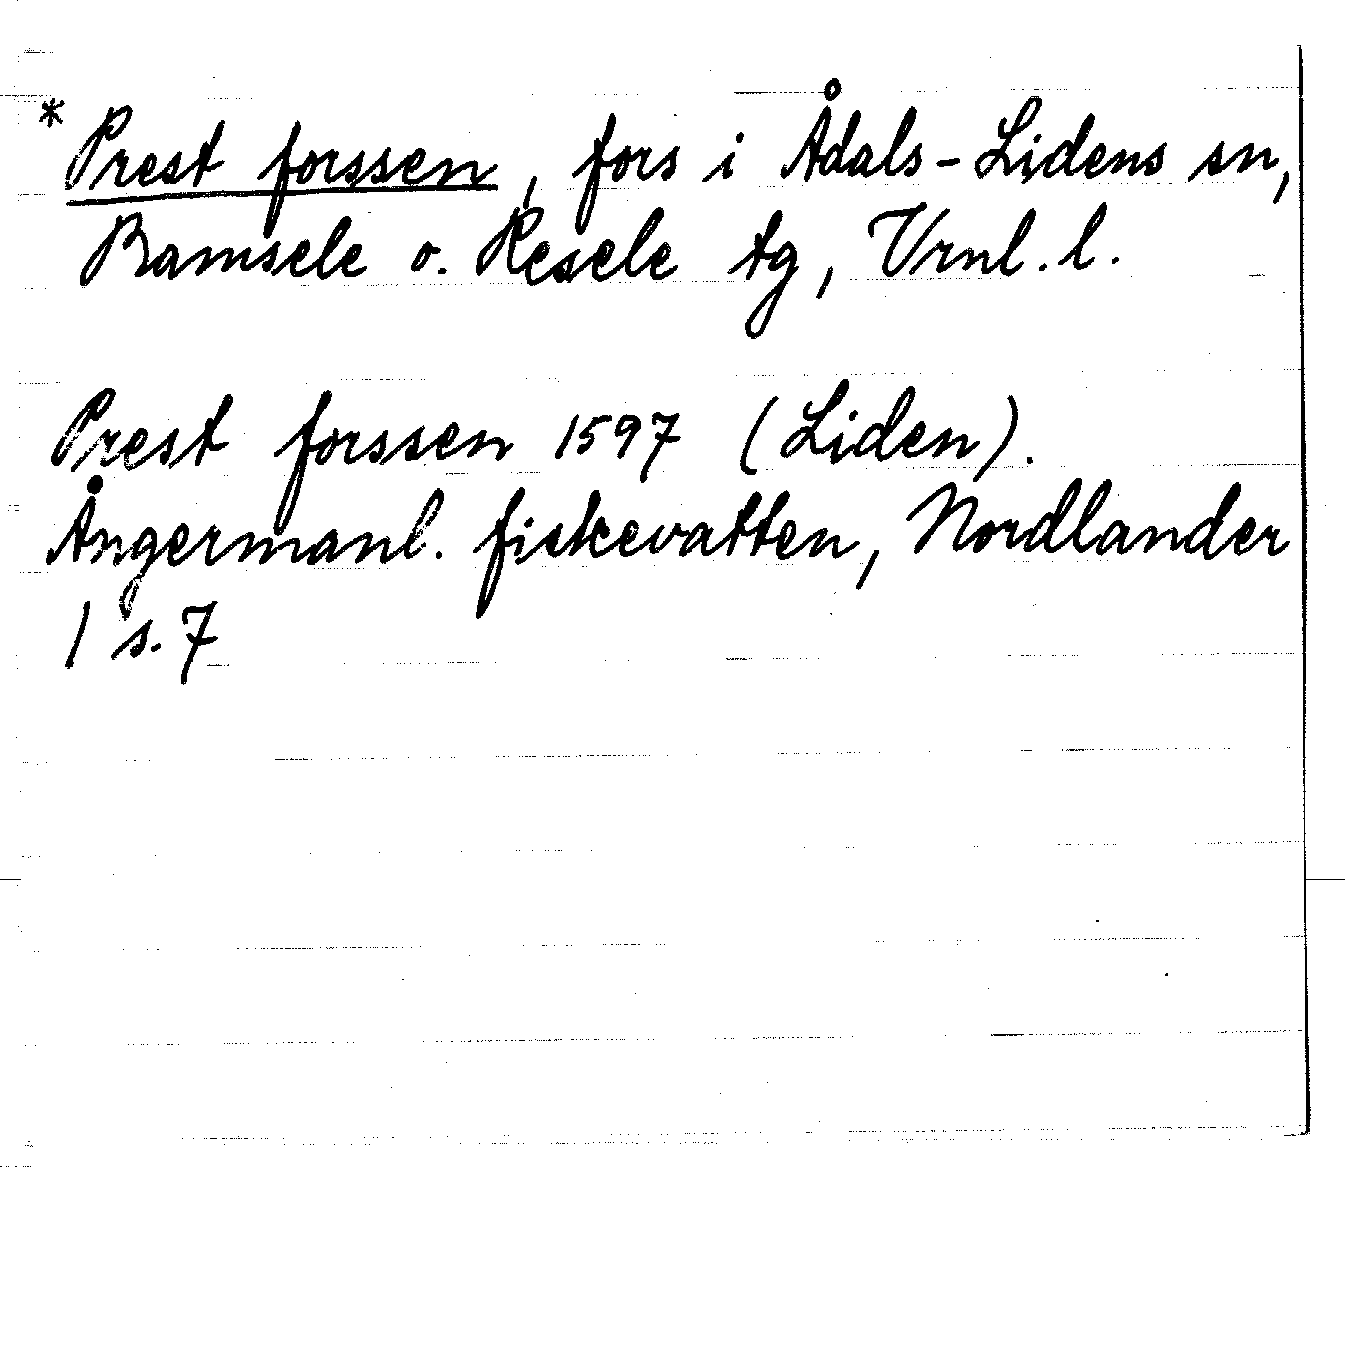 * Prest forssen, fors i Ådals-Lidens sn,
Ramsele o. Resele tg, Vrnl. l.
Prest forssen 1597 (Liden).
Ångermanl. fiskevatten, Nordlander
1 s. 7